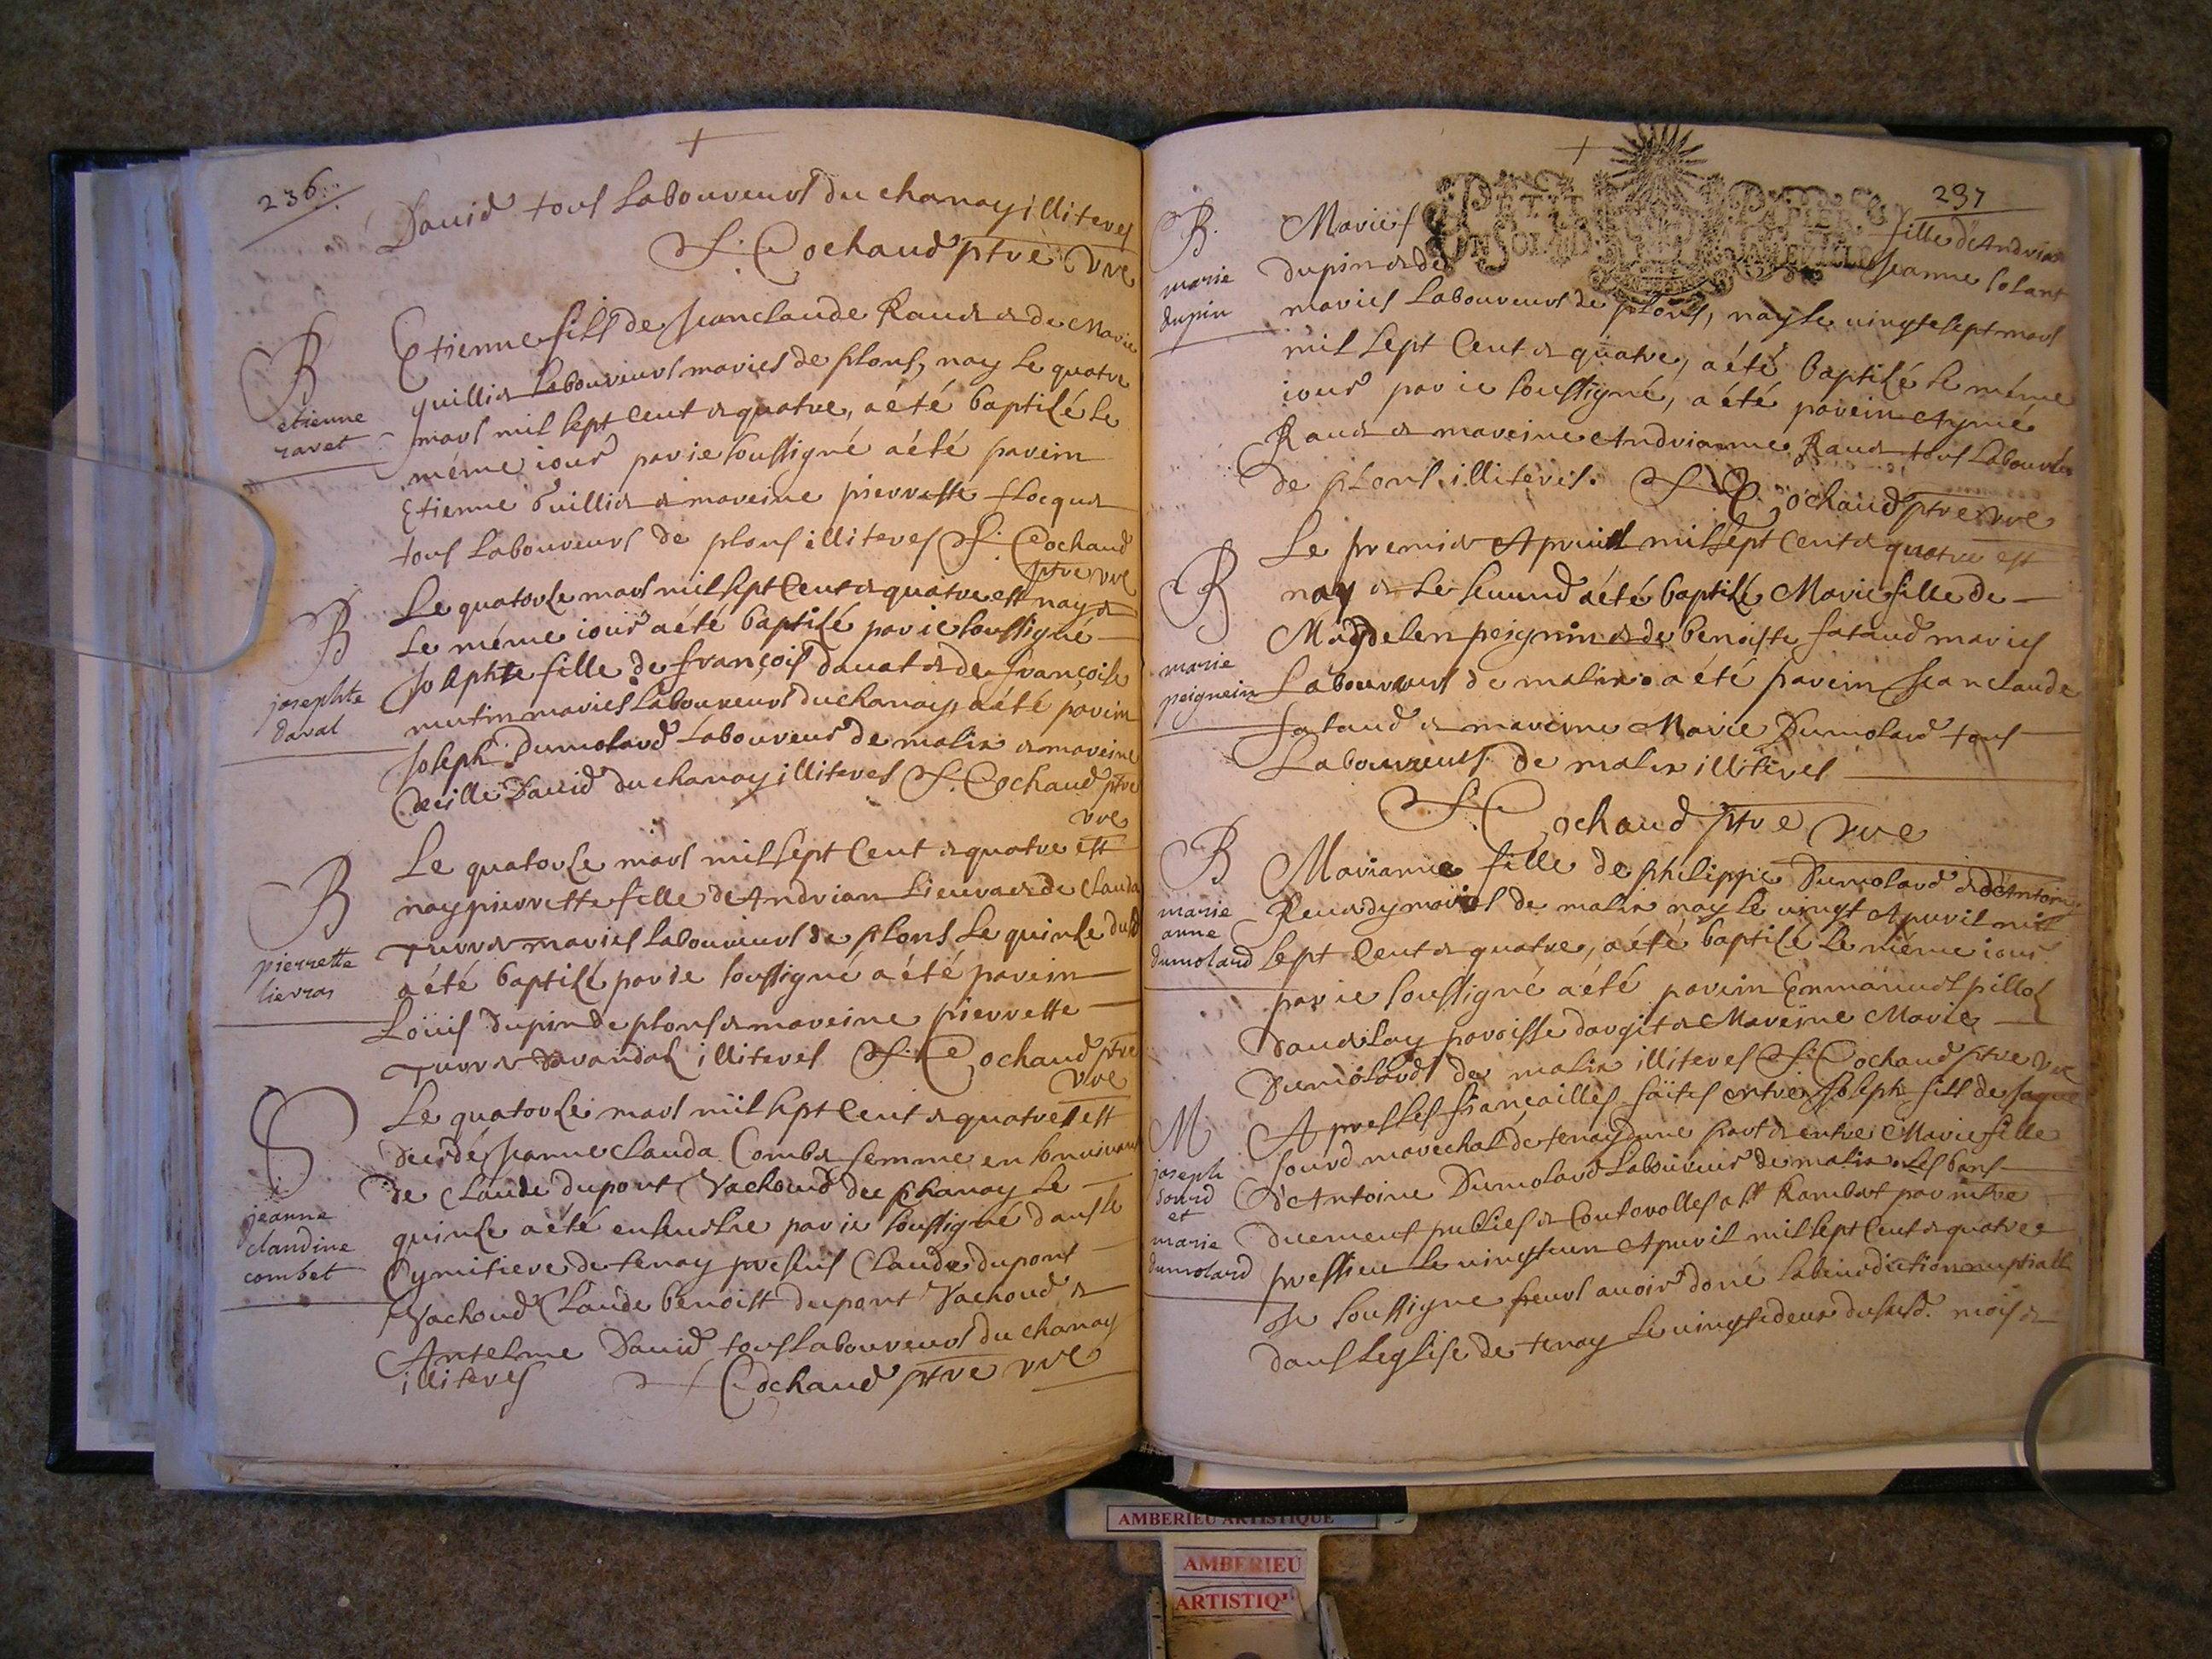 236.
David tous laboureurs du chanay illiteres
S. Cochaud ptre vre
B
etienne
ravet
Etienne fils de Jeanclaude Rauet & de Marie
guilliet laboureurs maries de plons, nay le quatre
mars mil sept cent & quatre, a été baptisé le
méme iour par ie soussigné a été parein
Etienne Guilliet & mareine pierrette
tous laboureurs de plons illiteres S. Cochaud
ptre vre
B
josephte
davat
Le quatorze mars mil sept cent & quatre est nay &
le méme iour a été baptisé par ie soussigné
Josephte fille de françois dauat & de françoise
mutin maries laboureurs du chanay, a été parein
Joseph Dumolard laboureur de malix & mareine
Cecille David du chanay illiteres S. Cochaud ptre
vre
B
pierrette
lievras
Le quatorze mars mil sept cent & quatre est
nay pierrette fille de Andrian Lieuras & de Clauda
Turret maries laboureurs de plons le quinze dusd
a été baptisé par ie soussigné a été parein
Loüis dupin de plons & mareine pierrette
Turret illiteres S. Cochaud ptre
vre
S
jeanne
claudine
combet
Le quatorze mars mil sept cent & quatre est
decedé Jeanne Clauda Combet femme en son uiuant
de Claude dupont Vachoud du chanay le
quinze a été enseuelie par ie soussigné dans le
Cymitiere de tenay presens Claude dupont
Vachoud Claude benoist dupont Vachoud &
Antelme David tous laboureurs du chanay
illiteres S Cochaud ptre vre
237
PETIT PAPIER
B.
marie
dupin
Marie fille d'Andrian
dupin & de Jeanne
maries laboureurs de plons, nay le uingt & sept mars
mil sept cent & quatre, a été baptisé le méme
iour par ie soussigné, a été parein Aymé
Rauet & mareine Andrianne Rauet tous laboureurs
de plons illiteres. S. Cochaud ptre vre
B
marie
peignein
Le premier Apuril mil sept cent & quatre est
nay & le second a été baptisé Marie fille de
Magdelen peignin & de benoiste fataud maries
Laboureurs de malix a été parein Jeanclaude
fataud & mareine Marie Dumolard tous
Laboureurs de malix illiteres
S. Cochaud ptre vre
B
marie
anne
dumolard
Marianne fille de philippe Dumolard & d'Antoine
maries de malix nay le uingt Apuril mil
sept cent & quatre, a été baptisé le méme iour
par ie soussigné a été parein Emmanuel pilloz
paroisse dargit & Mareine Marie
Dumolard de malix illiteres S. Cochaud ptre vre
M
joseph
sourd
et
marie
dumolard
Apres les fiançailles faites entre Joseph fils de Jaque
sourd maréchal de tenay dune part & entre Marie fille
d'Antoine Dumolard laboureur de malix. Les bans
duement publies & Controlles a st Rambert par mtre
pressieu le uingt & un Apuril mil sept cent & quatre
Je soussigne feurs auoir doné la benediction nuptiale
dans leglise de tenay le uingt & deux dususd. mois &
AMBERIEU ARTISTIQUE
AMBERIEU
ARTISTIQ